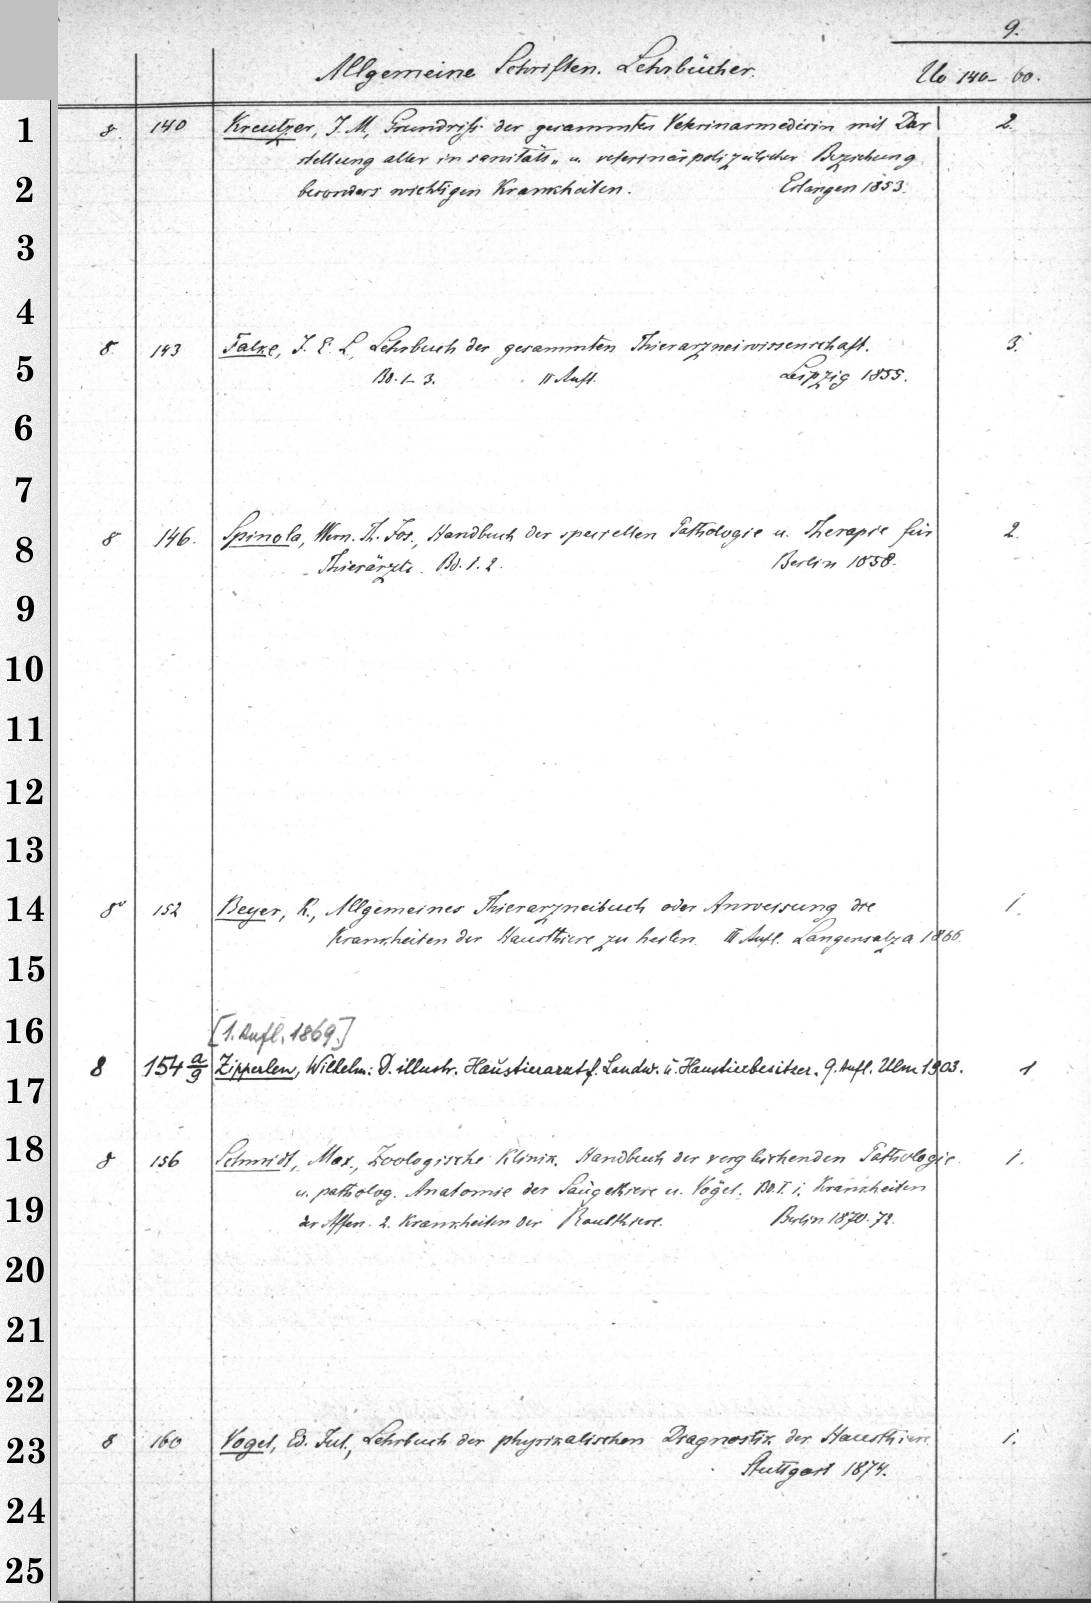 9.
Allgemeine Schriften. Lehrbücher. Uo 140–60.
1
8. 140 Kreutzer, J. M., Grundriß der gesammten Veterinärmedicin mit Dar 2.
stellung aller in sanitäts- u. veterinärpolizeilicher Beziehung
2
besonders wichtigen Krankheiten. Erlangen 1853.
3
4
8. 143 Falke, J. E. L., Lehrbuch der gesammten Thierarzneiwissenschaft. 3.
5
Bd. 1–3. II Aufl. Leipzig 1855.
6
7
8 146. Spinola, Wern. Th. Jos., Handbuch der speciellen Pathologie u. Therapie für 2.
8
Thierärzte. Bd. 1. 2. Berlin 1858.
9
10
11
12
13
14
8º 152 Beyer, R., Allgemeines Thierarzneibuch oder Anweisung die 1.
Krankheiten der Hausthiere zu heilen. III Aufl. Langensalza 1866.
15
16
[1. Aufl. 1869.]
8 154 a/9 Zipperlen, Wilhelm: D. illustr. Haustierarzt f. Landw. u. Haustierbesitzer. 9. Aufl. Ulm 1903. 1
17
18
8 156 Schmidt, Max., Zoologische Klinik. Handbuch der vergleichenden Pathologie 1.
u. patholog. Anatomie der Säugethiere u. Vögel. Bd. I. 1. Krankheiten
19
der Affen. 2. Krankheiten der Raubthiere. Berlin 1870. 72.
20
21
22
8 160 Vogel, Ed. Jul., Lehrbuch der physikalischen Diagnostik der Hausthiere 1.
23
Stuttgart 1874.
24
25